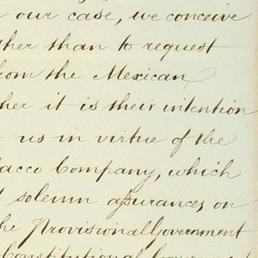 our case, we conceive
ther than to request
from the Mexican
her it is their intention
us in virtue of the
acco Company, which
solemn assurances on
he Provisional Government
Constitutional